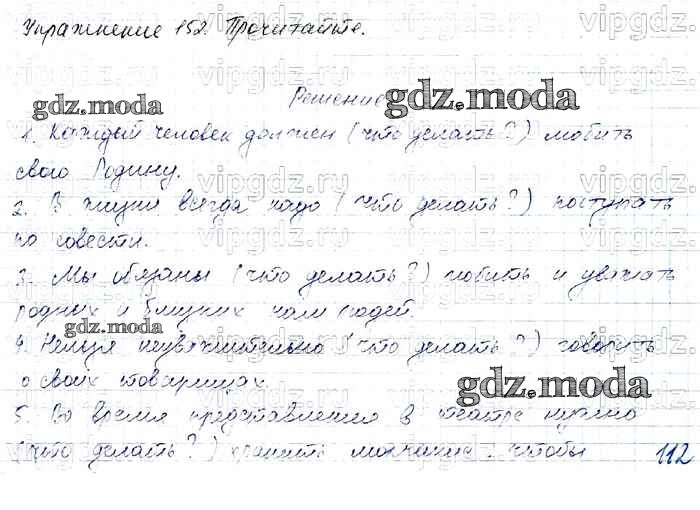 Упражнение 152. Прочитайте.
Решение
1. Каждый человек должен (что делать?) любить
свою Родину.
2. В жизни всегда надо (что делать?) поступать
по совести.
3. Мы обязаны (что делать?) любить и уважать
родных и близких нам людей.
4. Нельзя неуважительно (что делать?) говорить
о своих товарищах.
5. Во время представления в театре нужно
(что делать?) хранить молчание, чтобы
112
gdz.moda
gdz.moda
gdz.moda
gdz.moda
vipgdz.ru